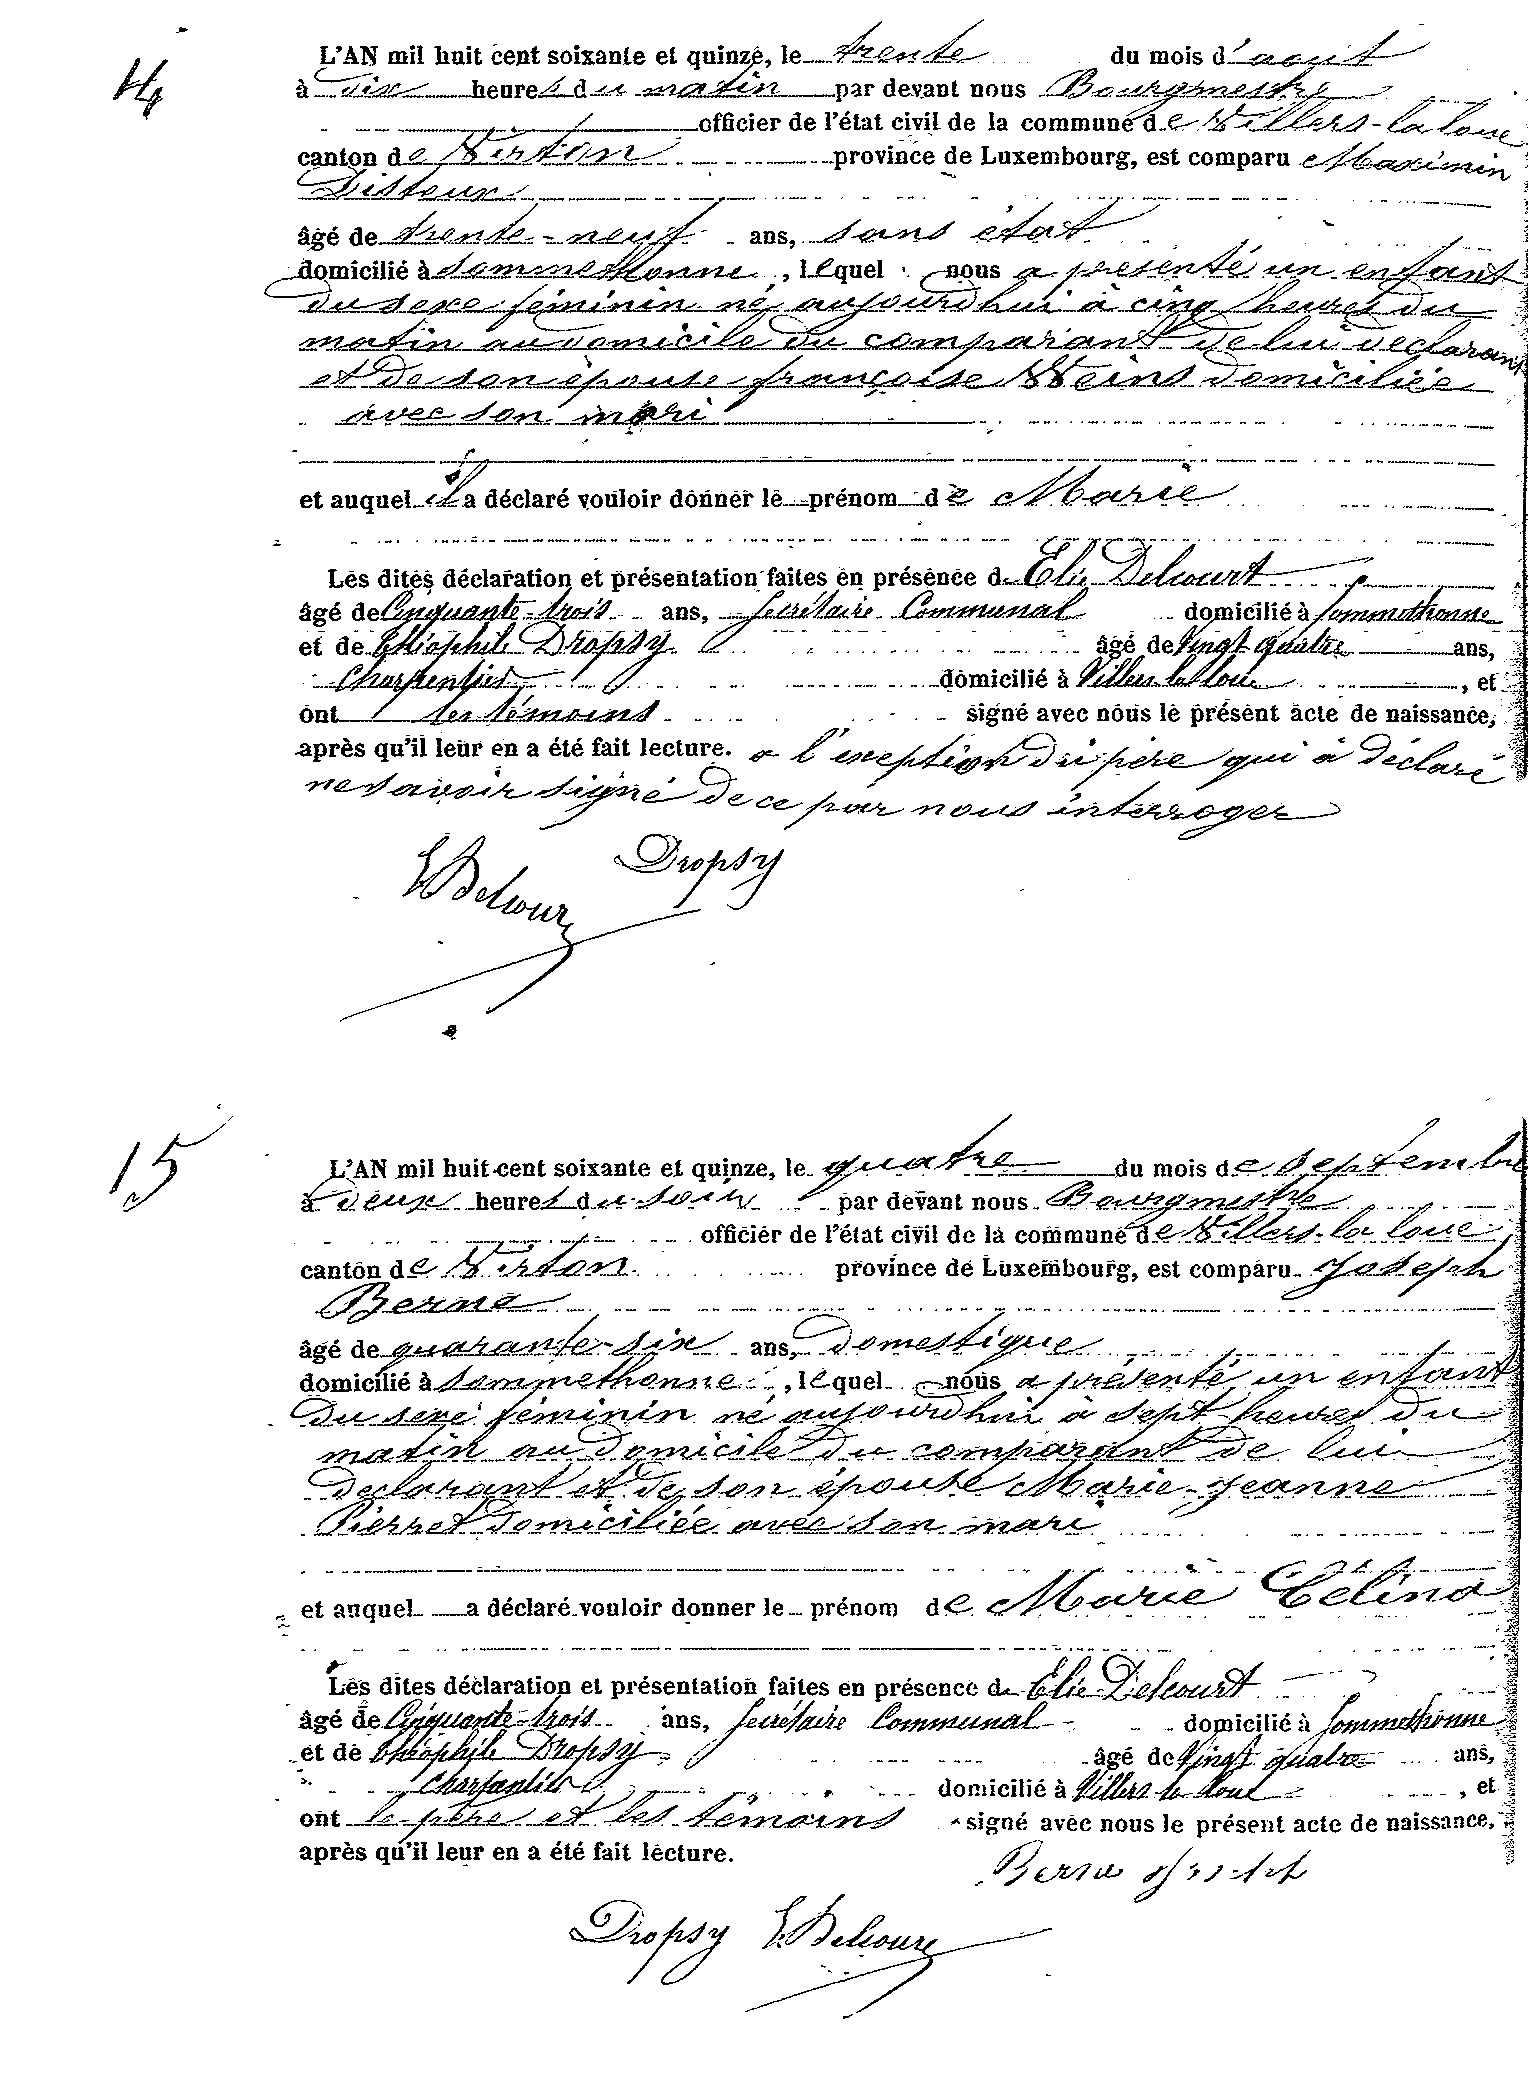 14
L'AN mil huit cent soixante et quinze, le trente du mois d'aout
à dix heures du matin par devant nous Bourgmestre
officier de l'état civil de la commune de Villers-la loue
canton de Virton province de Luxembourg, est comparu Maximin
Disteux
âgé de trente-neuf ans, sans état
domicilié à Sommethonne, lequel nous a présenté un enfant
du sexe féminin né aujourdhui à cinq heures du
matin au domicile du comparant de lui déclarant
et de son épouse françoise Weins domiciliée
avec son mari
et auquel il a déclaré vouloir donner le prénom de Marie
Les dites déclaration et présentation faites en présence d Elie Delcourt
âgé de Cinquante-trois ans, Secrétaire Communal domicilié à Sommethonne
et de théophile Dropsy âgé de Vingt quatre ans,
Charpentier domicilié à Villers la loue, et
ont les témoins signé avec nous le présent acte de naissance,
après qu'il leur en a été fait lecture. a l'exeption du père qui à déclaré
ne savoir signé de ce par nous interroger
E Delcour Dropsy
15
L'AN mil huit cent soixante et quinze, le quatre du mois de septembre
à deux heures du soir par devant nous Bourgmestre
officier de l'état civil de la commune de Villers-la loue
canton de Virton province de Luxembourg, est comparu Joseph
Berne
âgé de quarante-six ans, domestique
domicilié à Sommethonne, lequel nous a présenté un enfant
du sexe féminin né aujourdhui à sept heures du
matin au domicile du comparant de lui
declarant et de son épouse Marie-Jeanne
Pierret domiciliée avec son mari
et auquel a déclaré vouloir donner le prénom de Marie Célina
Les dites déclaration et présentation faites en présence d Elie Delcourt
âgé de Cinquante-trois ans, Secrétaire Communal domicilié à Sommethonne
et de théophile Dropsy âgé de Vingt quatre ans,
Charpentier domicilié à Villers la loue, et
ont le père et les témoins signé avec nous le présent acte de naissance,
après qu'il leur en a été fait lecture.
Berne
Dropsy E Delcour